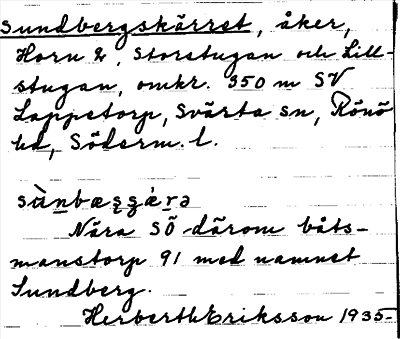 Sundbergskärret, åker,
Horn 2, Storstugan och Lill-
stugan, omkr. 350 m SV
Lappetorp, Svärta sn, Rönö
hd, Söderm. l.
Nära SÖ därom båts-
manstorp 91 med namnet
Sundberg.
Herbert Eriksson 1935